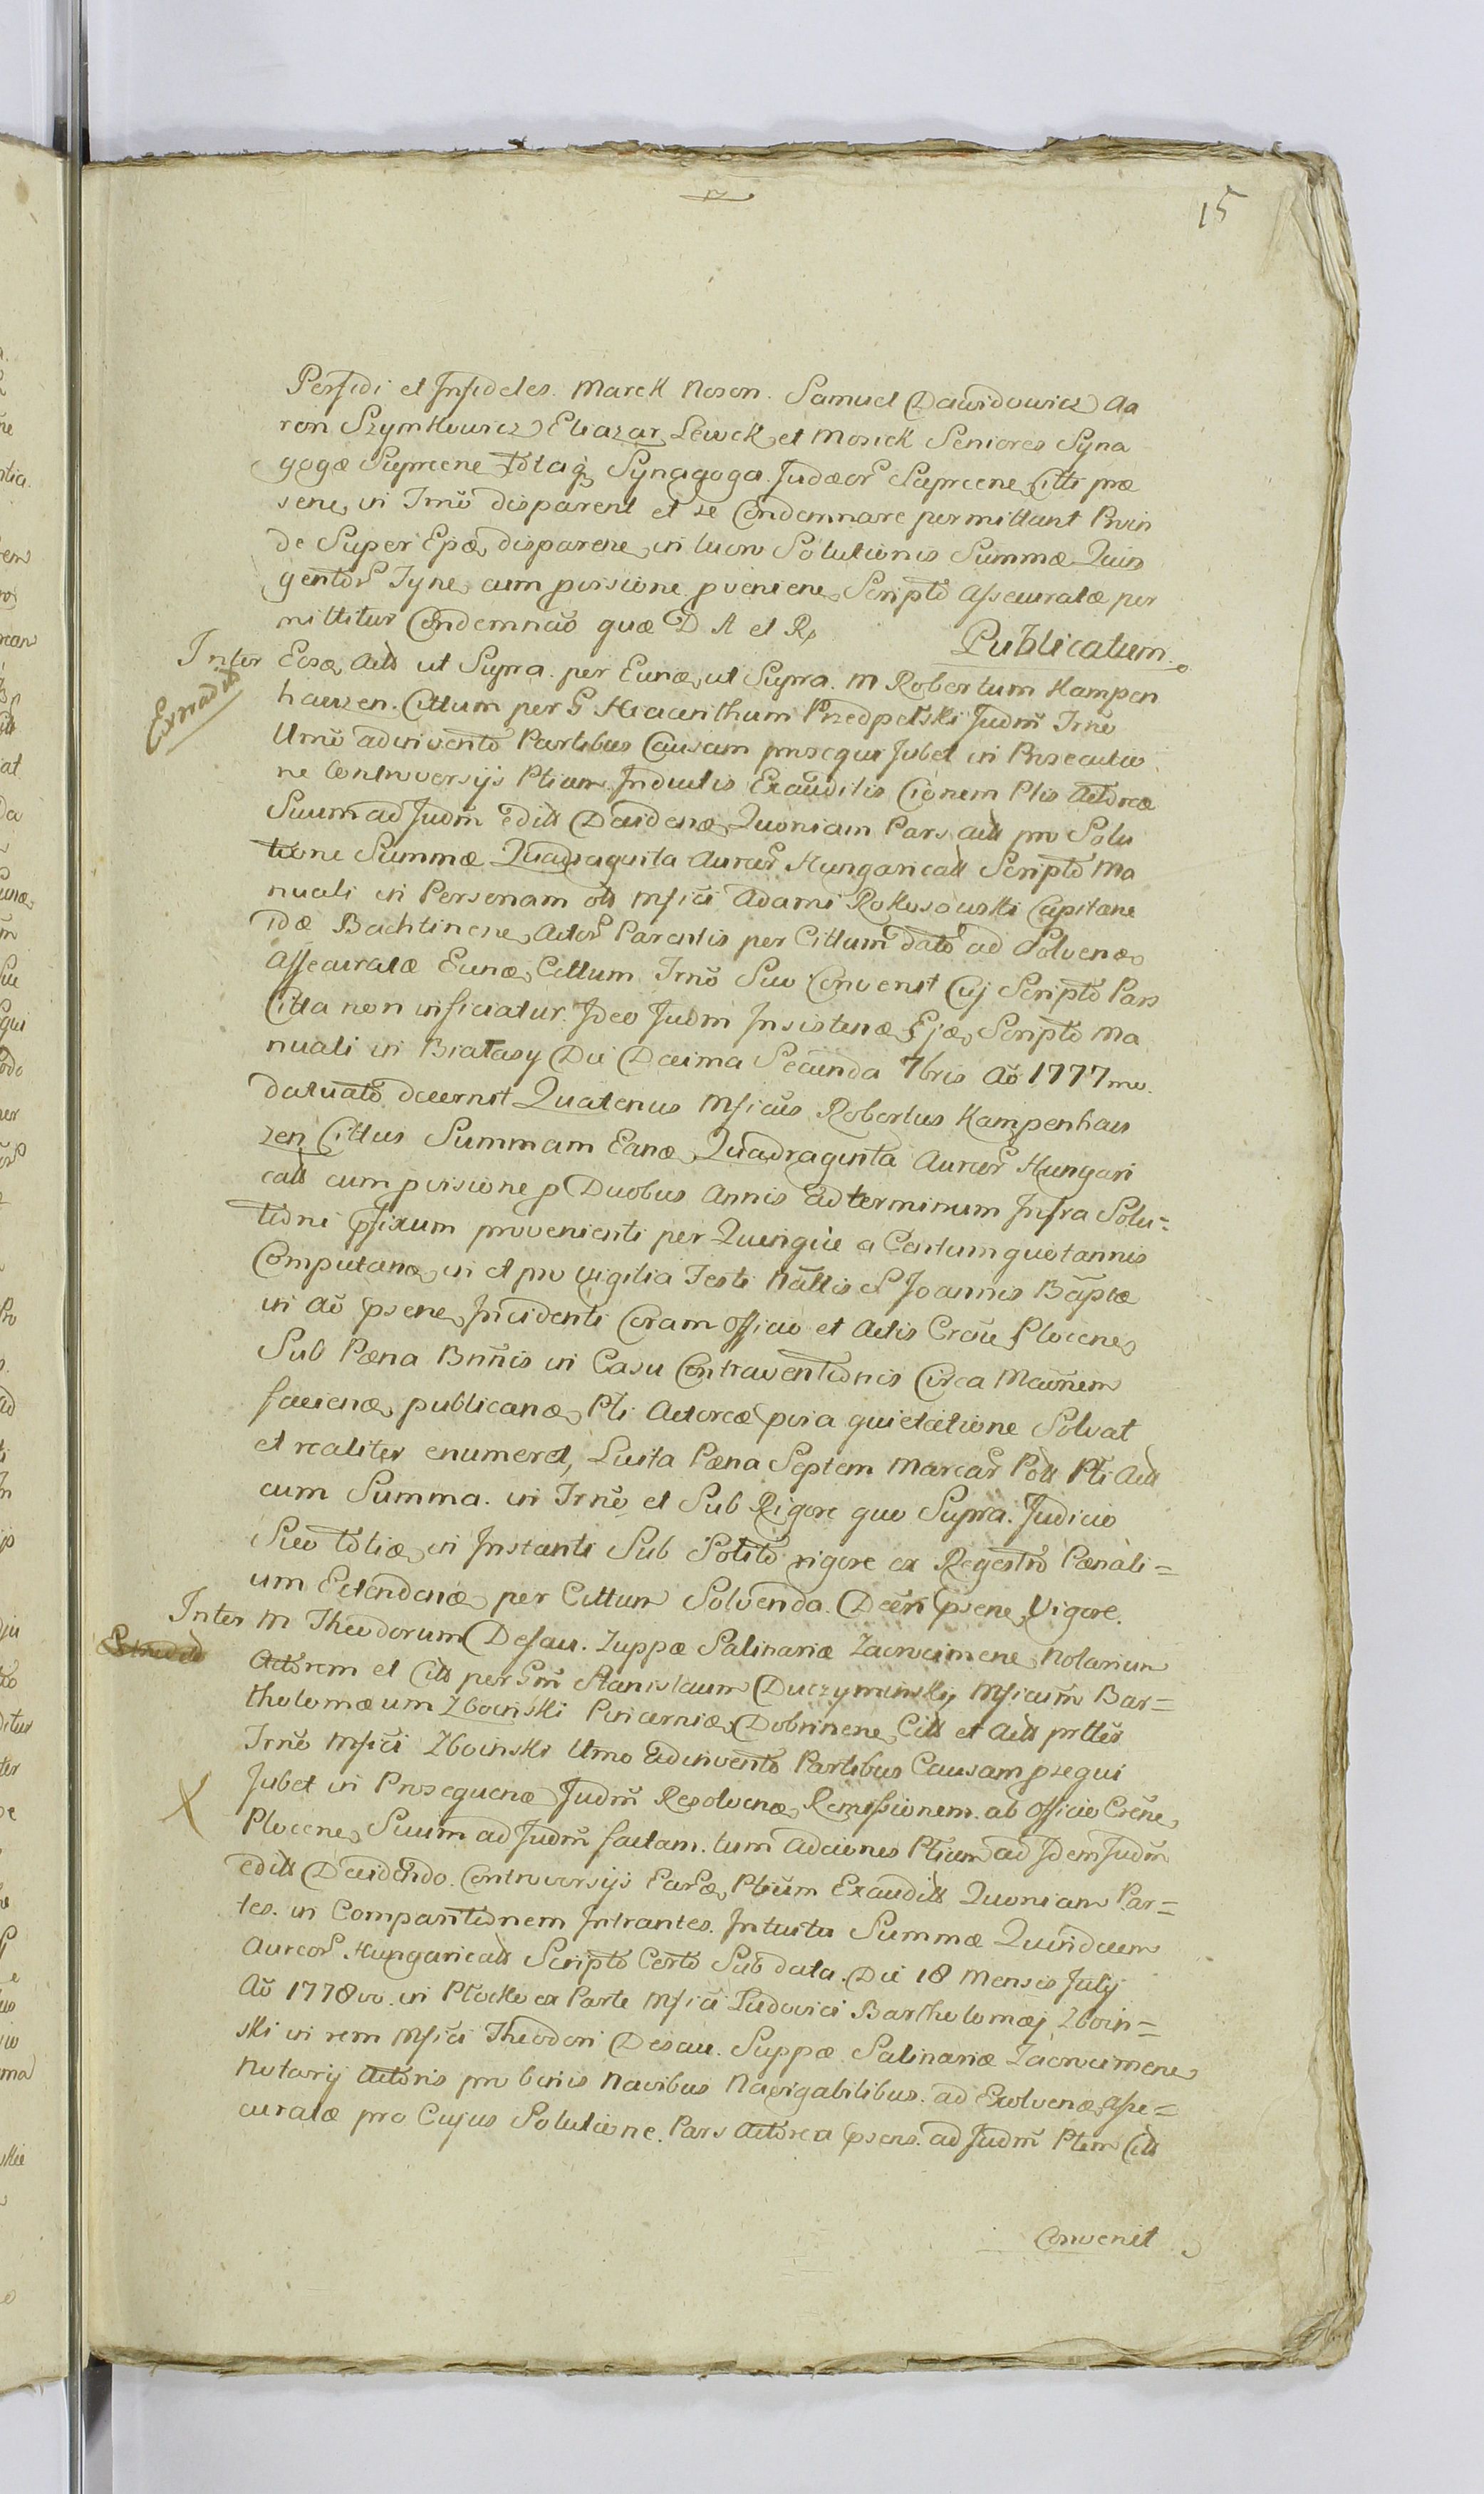 15
Perfidi et Infideles. Marek Noson. Samuel Dawidowicz Aa
ron Szymkowicz Eliazar Lewek et Mosiek Seniores Syna
gogæ Sieprcene totaq Synagoga Judæor Sieprcene Citti præ
sene in Trnô disparent et se Condemnare permittant Proin
de Super Eisdæ disparene in lucro Solutionis Summæ Quin
gentor Tyne cum provisione pveniene Scripto Assecuratæ per
mittitur Condemnaô quæ D A et R
Publicatum
Inter Eosæ Acts ut Supra per Eunæ ut Supra M Robertum Kampen
Extradit
hauzen Cittum per G Hiacinthum Przedpełski Judm Trnô
Umô adinvento Partibus Causam prosequi Jubet in Prosecutio
ne Controversijs Ptium Inductis Exauditis Cionem Ptis Actoreæ
Suum ad Judm editt Decidenæ Quoniam Pars Actt pro Solu
tione Summæ Quadraginta Aureor Hungaricatt Scripto Ma
nuali in Personam olt Mfici Adami Rokosowski Capitane
idæ Bachtinene Actor Parentis per Cittum dato ad Solvenæ
Assecuratæ Eunæ Cittum Trnô Suo Convenit Cuj Scripto Pars
Citta non inficiatur. Ideo Judm Insistenæ Ejæ Scripto Ma
nuali in Bratasy Die Decima Secunda 7bris Aô 1777mo.
datuato decernit Quatenus Mficus Robertus Kampenhau
zen Cittus Summam Eanæ Quadraginta Aureor Hungari
catt cum provisione p Duobus Annis ad terminum Infra Solu=
tioni pfixum provenienti per Quinque a Centum quotannis
Computanæ in et pro Vigilia Festi Nattis S Joannis Baptæ
in Aô psene Incidenti Coram Officio et Actis Crciû Plocene
Sub Pæna Bnnis in Casu Contraventionis Circa Mcionem
facienæ publicanæ Pti Actoreæ pria quietatione Solvat
et realiter enumeret, Luita Pæna Septem Marcar Poll Pti Actt
cum Summa in Trnô et Sub Rigore quo Supra. Judicio
Suo toliæ in Instanti Sub Solito rigore ex Regestro Pænali=
um Extendenæ per Cittum Solvenda. Decri psene Vigore.
Inter M Theodorum Desau. Zuppæ Salinariæ Zacrocimene Notarium
Extradit
Actorem et Citt per Gm Stanislaum Duczyminski, Mficum Bar=
tholomæum Zboinski Pincerniæ Dobrinene Citt et Actt prttes
Trnô Mfici Zboinski Umo adinvento Partibus Causam psequi
X
Jubet in Prosequenæ Judm Resolvenæ Remissionem ab Officio Crcne
Plocene Suum ad Judm factam. tum Adciones Ptium ad Idem Judm
editt Decidendo Controversijs Earæ Ptium Exauditt Quoniam Par=
tes. in Comparitionem Intrantes. Intuitu Summæ Quindecim
Aureor Hungaricatt Scripto Certo Sub data. Die 18 Mensis Julij
Aô 1778vo. in Płocko ex Parte Mfici Ludovici Bartholomæj Zboin=
ski in rem Mfici Theodori Desau. Suppæ Salinariæ Zacrocimene
Notarij Actoris pro binis Navibus Navigabilibus. ad Exolvenæ Asse=
curatæ pro Cujus Solutione. Pars Actorea psens. ad Judm Ptem Citt
Convenit